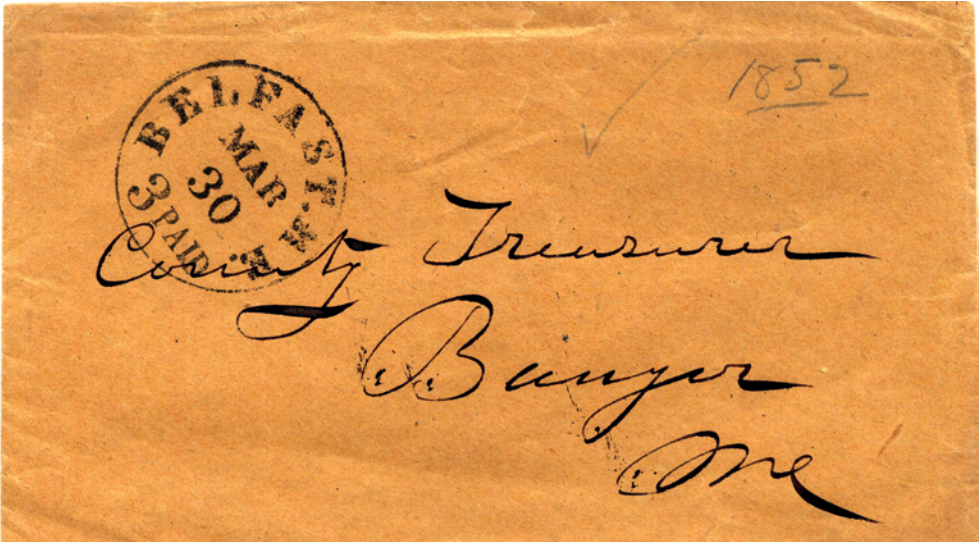 1852
BELFAST. Me.
MAR
30
3 PAID
County Treasurer
Bangor
Me